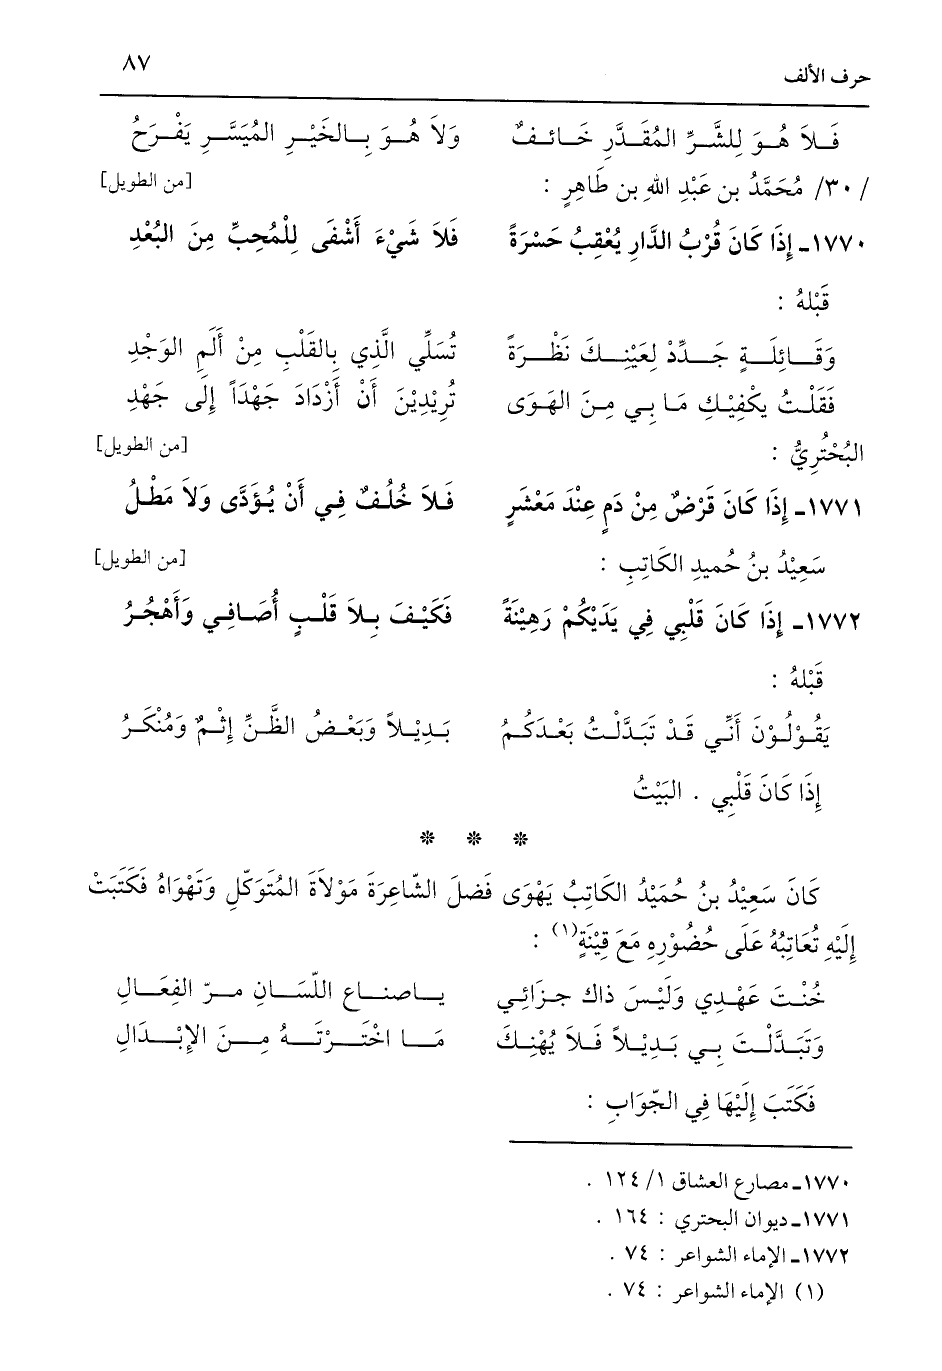 حرف الألف ٨٧
فَلاَ هُوَ لِلشَّرِّ المُقَدَّرِ خَائفٌ وَلاَ هُوَ بِالخَيْرِ المُيَسَّرِ يَفْرَحُ
/٣٠/ مُحَمَّدُ بن عَبْدِ اللهِ بن طَاهِرٍ : [من الطويل]
١٧٧٠ـ إِذَا كَانَ قُرْبُ الدَّارِ يُعْقِبُ حَسْرَةً فَلاَ شَيْءَ أَشْفَى لِلْمُحِبِّ مِنَ البُعْدِ
قَبْلهُ :
وَقَائِلَةٍ جَدِّدْ لِعَيْنِكَ نَظْرَةً تُسَلِّي الَّذِي بِالقَلْبِ مِنْ أَلَمِ الوَجْدِ
فَقَلْتُ يكْفِيْكِ مَا بِي مِنَ الهَوَى تُرِيْدِيْنَ أَنْ أَزْدَادَ جَهْدَاً إِلَى جَهْدِ
البُحْتُرِيُّ : [من الطويل]
١٧٧١ـ إِذَا كَانَ قَرْضٌ مِنْ دَمٍ عِنْدَ مَعْشَرٍ فَلاَ خُلُفٌ فِي أَنْ يُؤَدَّى وَلاَ مَطْلُ
سَعِيْدُ بنُ حُميدِ الكَاتِبِ : [من الطويل]
١٧٧٢ـ إِذَا كَانَ قَلْبِي فِي يَدَيْكُمْ رَهِيْنَةً فَكَيْفَ بِلاَ قَلْبٍ أُصَافِي وَأَهْجُرُ
قَبْلهُ :
يَقُوْلُوْنَ أَنِّي قَدْ تَبَدَّلْتُ بَعْدَكُمُ بَدِيْلاً وَبَعْضُ الظَّنِّ إِثْمٌ وَمُنْكَرُ
إِذَا كَانَ قَلْبِي . البَيْتُ
* * *
كَانَ سَعِيْدُ بنُ حُمَيْدُ الكَاتِبُ يَهْوَى فَضلَ الشّاعِرَةَ مَوْلاَةَ المُتَوَكّلِ وَتَهْوَاهُ فَكَتَبَتْ
إِلَيْهِ تُعَاتِبُهُ عَلَى حُضُوْرِهِ مَعَ قِيْنَةٍ(١) :
خُنْتَ عَهْدِي وَلَيْسَ ذاكَ جزَائِي ياصناع اللّسَانِ مرّ الفِعَالِ
وَتَبَدَّلْتَ بِي بَدِيْلاً فَلاَ يُهْنِكَ مَا اخْتَرْتَهُ مِنَ الإِبْدَالِ
فَكَتَبَ إِلَيْهَا فِي الجّوَابِ :
١٧٧٠ـ مصارع العشاق ١/ ١٢٤ .
١٧٧١ـ ديوان البحتري : ١٦٤ .
١٧٧٢ـ الإماء الشواعر : ٧٤ .
(١) الإماء الشواعر : ٧٤ .